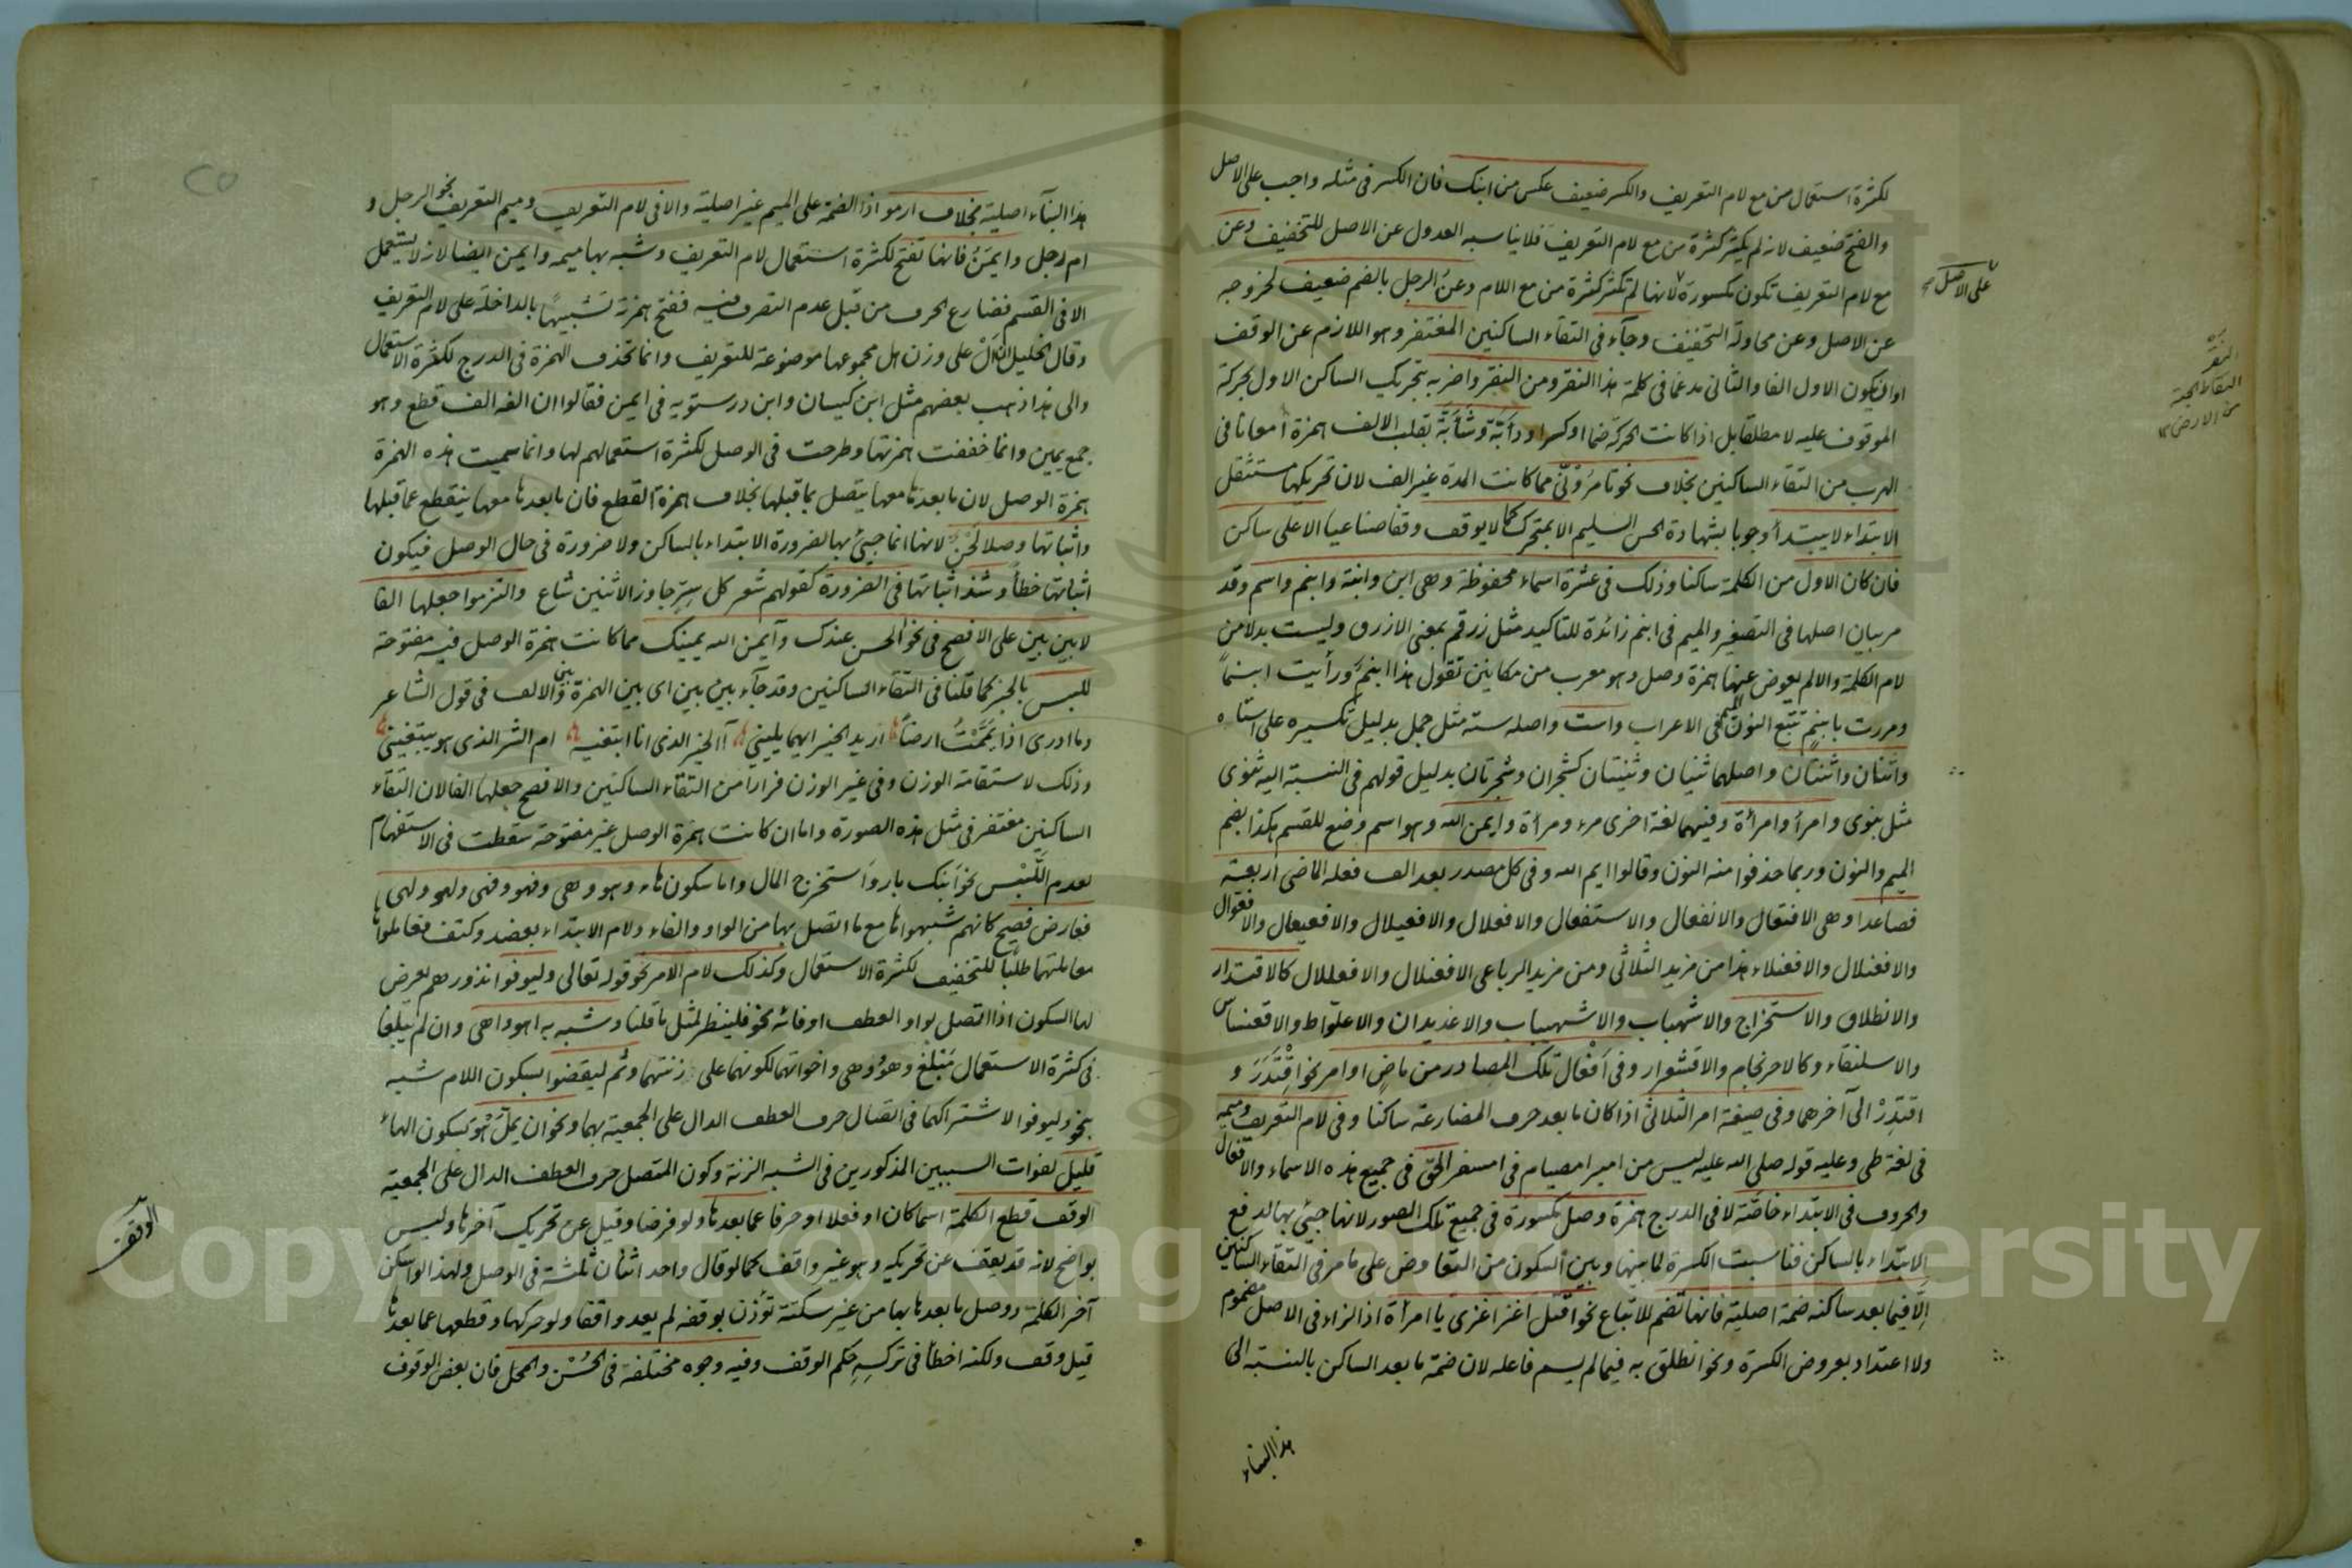 لكثرة استعمال من مع لام التعريف والكسر ضعيف عكس من ابنك فان الكسر فى مثله واجب على الاصل
والفتح ضعيف لانه لم يكثر كثرة من مع لام التعريف فلا يناسبه العدول عن الاصل للتخفيف وعن
مع لام التعريف تكون مكسورة لانها لم تكثر كثرة من مع اللام وعن الرجل بالضم ضعيف لخروجه
على الاصل صح
عن الاصل وعن محاولة التخفيف وجاء فى التقاء الساكنين المغتفر وهو اللازم عن الوقف
او ان يكون الاول الفا والثانى مدغما فى كلمة هذا النقر ومن النقر واضربه بتحريك الساكن الاول بحركة
النقر
التقاط الحبة
من الارض
الموقوف عليه لا مطلقا بل اذا كانت الحركة ضما او كسرا ودأبة وشأبة بقلب الالف همزة امعانا فى
الهرب من التقاء الساكنين بخلاف نحو تأمرونى مما كانت المدة غير الف لان تحريكها مستثقل
الابتداء لا يبتدأ وجوبا بشهادة الحس السليم الا بمتحرك كما لا يوقف وقفا صناعيا الا على ساكن
فان كان الاول من الكلمة ساكنا وذلك فى عشرة اسماء محفوظة وهى ابن وابنة وابنم واسم وقد
مر بيان اصلها فى التصغير والميم فى ابنم زائدة للتاكيد مثل زرقم بمعنى الازرق وليست بدلا من
لام الكلمة والا لم يعوض عنها همزة وصل وهو معرب من مكانين تقول هذا ابنم ورأيت ابنما
ومررت بابنم تتبع النون الميم فى الاعراب واست واصله سته مثل جمل بدليل تكسيره على استاه
واثنان واثنتان واصلهما ثنيان وثنيتان كشجران وشجرتان بدليل قولهم فى النسبة اليه ثنوى
مثل بنوى وامرأ وامرأة وفيهما لغة اخرى مرء ومرأة وايمن الله وهو اسم وضع للقسم هكذا بضم
الميم والنون وربما حذفوا منه النون وقالوا ايم الله وفى كل مصدر بعد الف فعله الماضى اربعة
فصاعدا وهى الافتعال والانفعال والاستفعال والافعلال والافعيلال والافعيعال والافعوال
والافعنلال والافعنلاء هذا من مزيد الثلاثى ومن مزيد الرباعى الافعنلال والافعللال كالاقتدار
والانطلاق والاستخراج والاشهباب والاشهيباب والاغديدان والاعلواط والاقعنساس
والاسلنقاء وكالاحرنجام والاقشعرار وفى افعال تلك المصادر من ماض او امر نحو اقتدر و
اقتدر الى آخرهما وفى صيغة امر الثلاثى اذا كان ما بعد حرف المضارعة ساكنا وفى لام التعريف وميمه
فى لغة طى وعليه قوله صلى الله عليه ليس من امبر امصيام فى امسفر الحق فى جميع هذه الاسماء والافعال
والحروف فى الابتداء خاصة لا فى الدرج همزة وصل مكسورة فى جميع تلك الصور لانها جئ بها لدفع
الابتداء بالساكن فناسبت الكسرة لما بينها وبين السكون من التعاوض على ما مر فى التقاء الساكنين
الا فيما بعد ساكنه ضمة اصلية فانها تضم للاتباع نحو اقتل اغز اغزى يا امرأة اذ الزاء فى الاصل مضموم
ولا اعتداد بعروض الكسرة ونحو انطلق به فيما لم يسم فاعله لان ضمة ما بعد الساكن بالنسبة الى
هذا البناء
هذا البناء اصلية بخلاف ارموا اذ الضمة على الميم غير اصلية والا فى لام التعريف وميم التعريف نحو الرجل و
ام رجل وايمن فانها تفتح لكثرة استعمال لام التعريف وشبه بها ميمه وايمن ايضا لانه لا يستعمل
الا فى القسم فضارع الحرف من قبل عدم التصرف فيه ففتح همزته تشبيها بالداخلة على لام التعريف
وقال الخليل ان ال على وزن هل مجموعها موضوعة للتعريف وانما تحذف الهمزة فى الدرج لكثرة الاستعمال
والى هذا ذهب بعضهم مثل ابن كيسان وابن درستويه فى ايمن فقالوا ان الفه الف قطع وهو
جمع يمين وانما خففت همزتها وطرحت فى الوصل لكثرة استعمالهم لها وانما سميت هذه الهمزة
همزة الوصل لان ما بعدها معها يتصل بما قبلها بخلاف همزة القطع فان ما بعدها معها ينقطع عما قبلها
واثباتها وصلا لحن لانها انما جئ بها لضرورة الابتداء بالساكن ولا ضرورة فى حال الوصل فيكون
اثباتها خطأ وشذ اثباتها فى الضرورة كقولهم شعر كل سر جاوز الاثنين شاع والتزموا جعلها الفا
لا بين بين على الافصح فى نحو الحسن عندك وآيمن الله يمينك مما كانت همزة الوصل فيه مفتوحة
للبس بالخبر كما قلنا فى التقاء الساكنين وقد جاء بين بين اى بين الهمزة وبين الالف فى قول الشاعر
وما ادرى اذا يممت ارضا اريد الخير ايهما يلينى أالخير الذى انا ابتغيه ام الشر الذى هو يبتغينى
وذلك لاستقامة الوزن وفى غير الوزن فرارا من التقاء الساكنين والافصح جعلها الفا لان التقاء
الساكنين مغتفر فى مثل هذه الصورة واما ان كانت همزة الوصل غير مفتوحة سقطت فى الاستفهام
لعدم اللبس نحو أبنك بار وأستخرج المال واما سكون هاء وهو وهى وفهو وفهى ولهو ولهى
فعارض فصيح كانهم شبهوا ها مع ما اتصل بها من الواو والفاء ولام الابتداء بعضد وكتف فعاملوها
معاملتهما طلبا للتخفيف لكثرة الاستعمال وكذلك لام الامر نحو قوله تعالى وليوفوا نذورهم يعرض
لها السكون اذا اتصل بواو العطف او فائه نحو فلينظر لمثل ما قلنا وشبه به اهو واهى وان لم يبلغا
فى كثرة الاستعمال مبلغ وهو وهى واخواتهما لكونهما على زنتهما وثم ليقضوا بسكون اللام شبه
بنحو وليوفوا لاشتراكهما فى اتصال حرف العطف الدال على الجمعية بهما ونحو ان يمل هو بسكون الهاء
قليل لفوات السببين المذكورين فى الشبه الزنة وكون المتصل حرف العطف الدال على الجمعية
الوقف قطع الكلمة اسما كان او فعلا او حرفا عما بعدها ولو فرضا وقيل عن تحريك آخرها وليس
بواضح لانه قد يقف عن تحريكه وهو غير واقف كما لو قال واحد اثنان ثلثة فى الوصل ولهذا لو اسكن
آخر الكلمة ووصل ما بعدها بها من غير سكتة تؤذن بوقفه لم يعد واقفا ولو حركها وقطعها عما بعدها
قيل وقف ولكنه اخطأ فى تركه حكم الوقف وفيه وجوه مختلفة فى الحسن والمحل فان بعض الوقوف
الوقف
Copyright © King Saud University